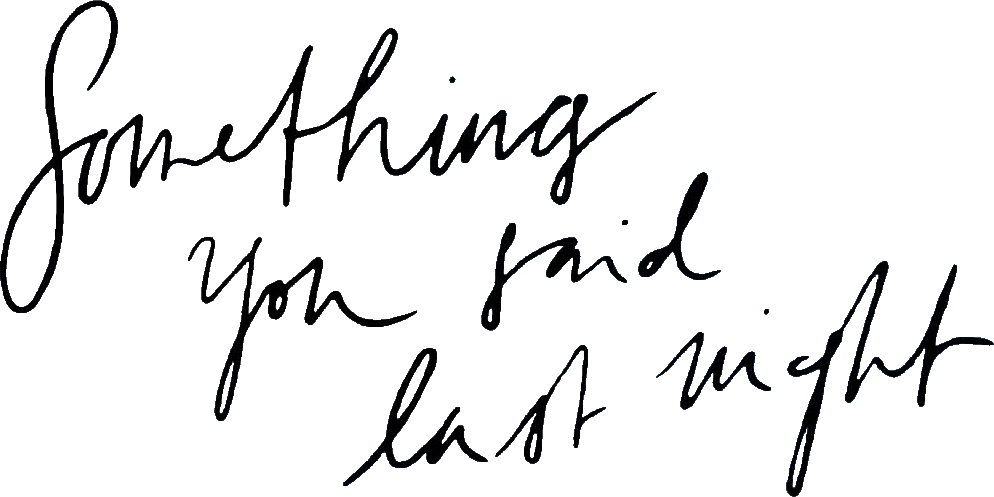 Something
you said
last night